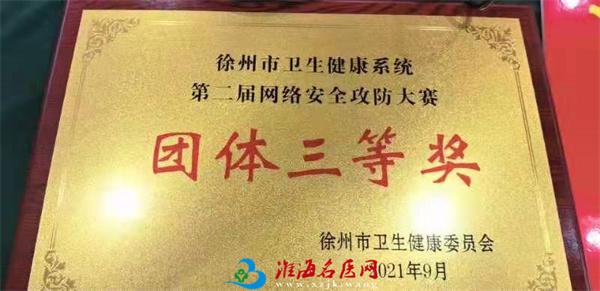 徐州市卫生健康系统
第二届网络安全攻防大赛
团体三等奖
徐州市卫生健康委员会
2021年9月
淮海名医网
www.xzjkw.wang